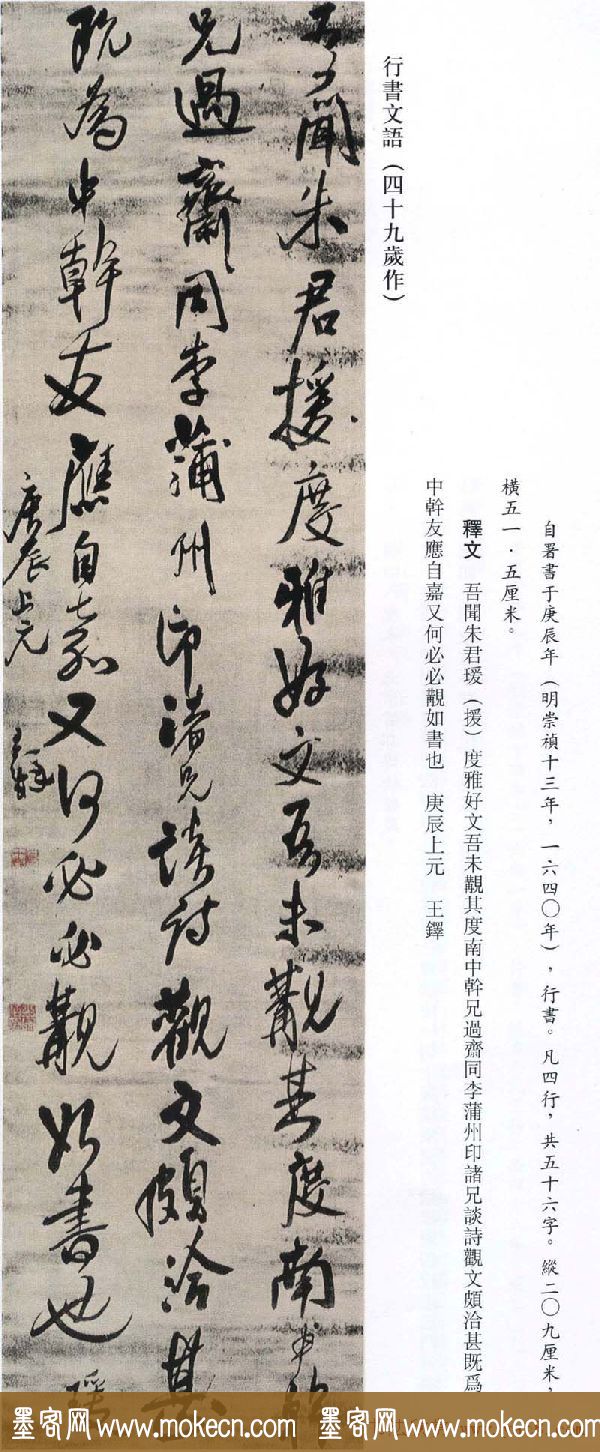 自署書于庚辰年（明崇禎十三年，一六四〇年），行書。凡四行，共五十六字。縱二〇九厘米，
橫五一·五厘米。
釋文　吾聞朱君瑗（援）度雅好文吾未覯其度南中幹兄過齋同李蒲州印諸兄談詩觀文頗洽甚既爲
中幹友應自嘉又何必必覯如書也　庚辰上元　王鐸
行書文語（四十九歲作）
吾聞朱君援度雅好文吾未覯其度南中幹
兄過齋同李蒲州印諸兄談詩觀文頗洽甚
既為中幹友應自嘉又何必必覯如書也 瑗
庚辰上元 王鐸
墨客网www.mokecn.com 墨客网www.mokecn.com